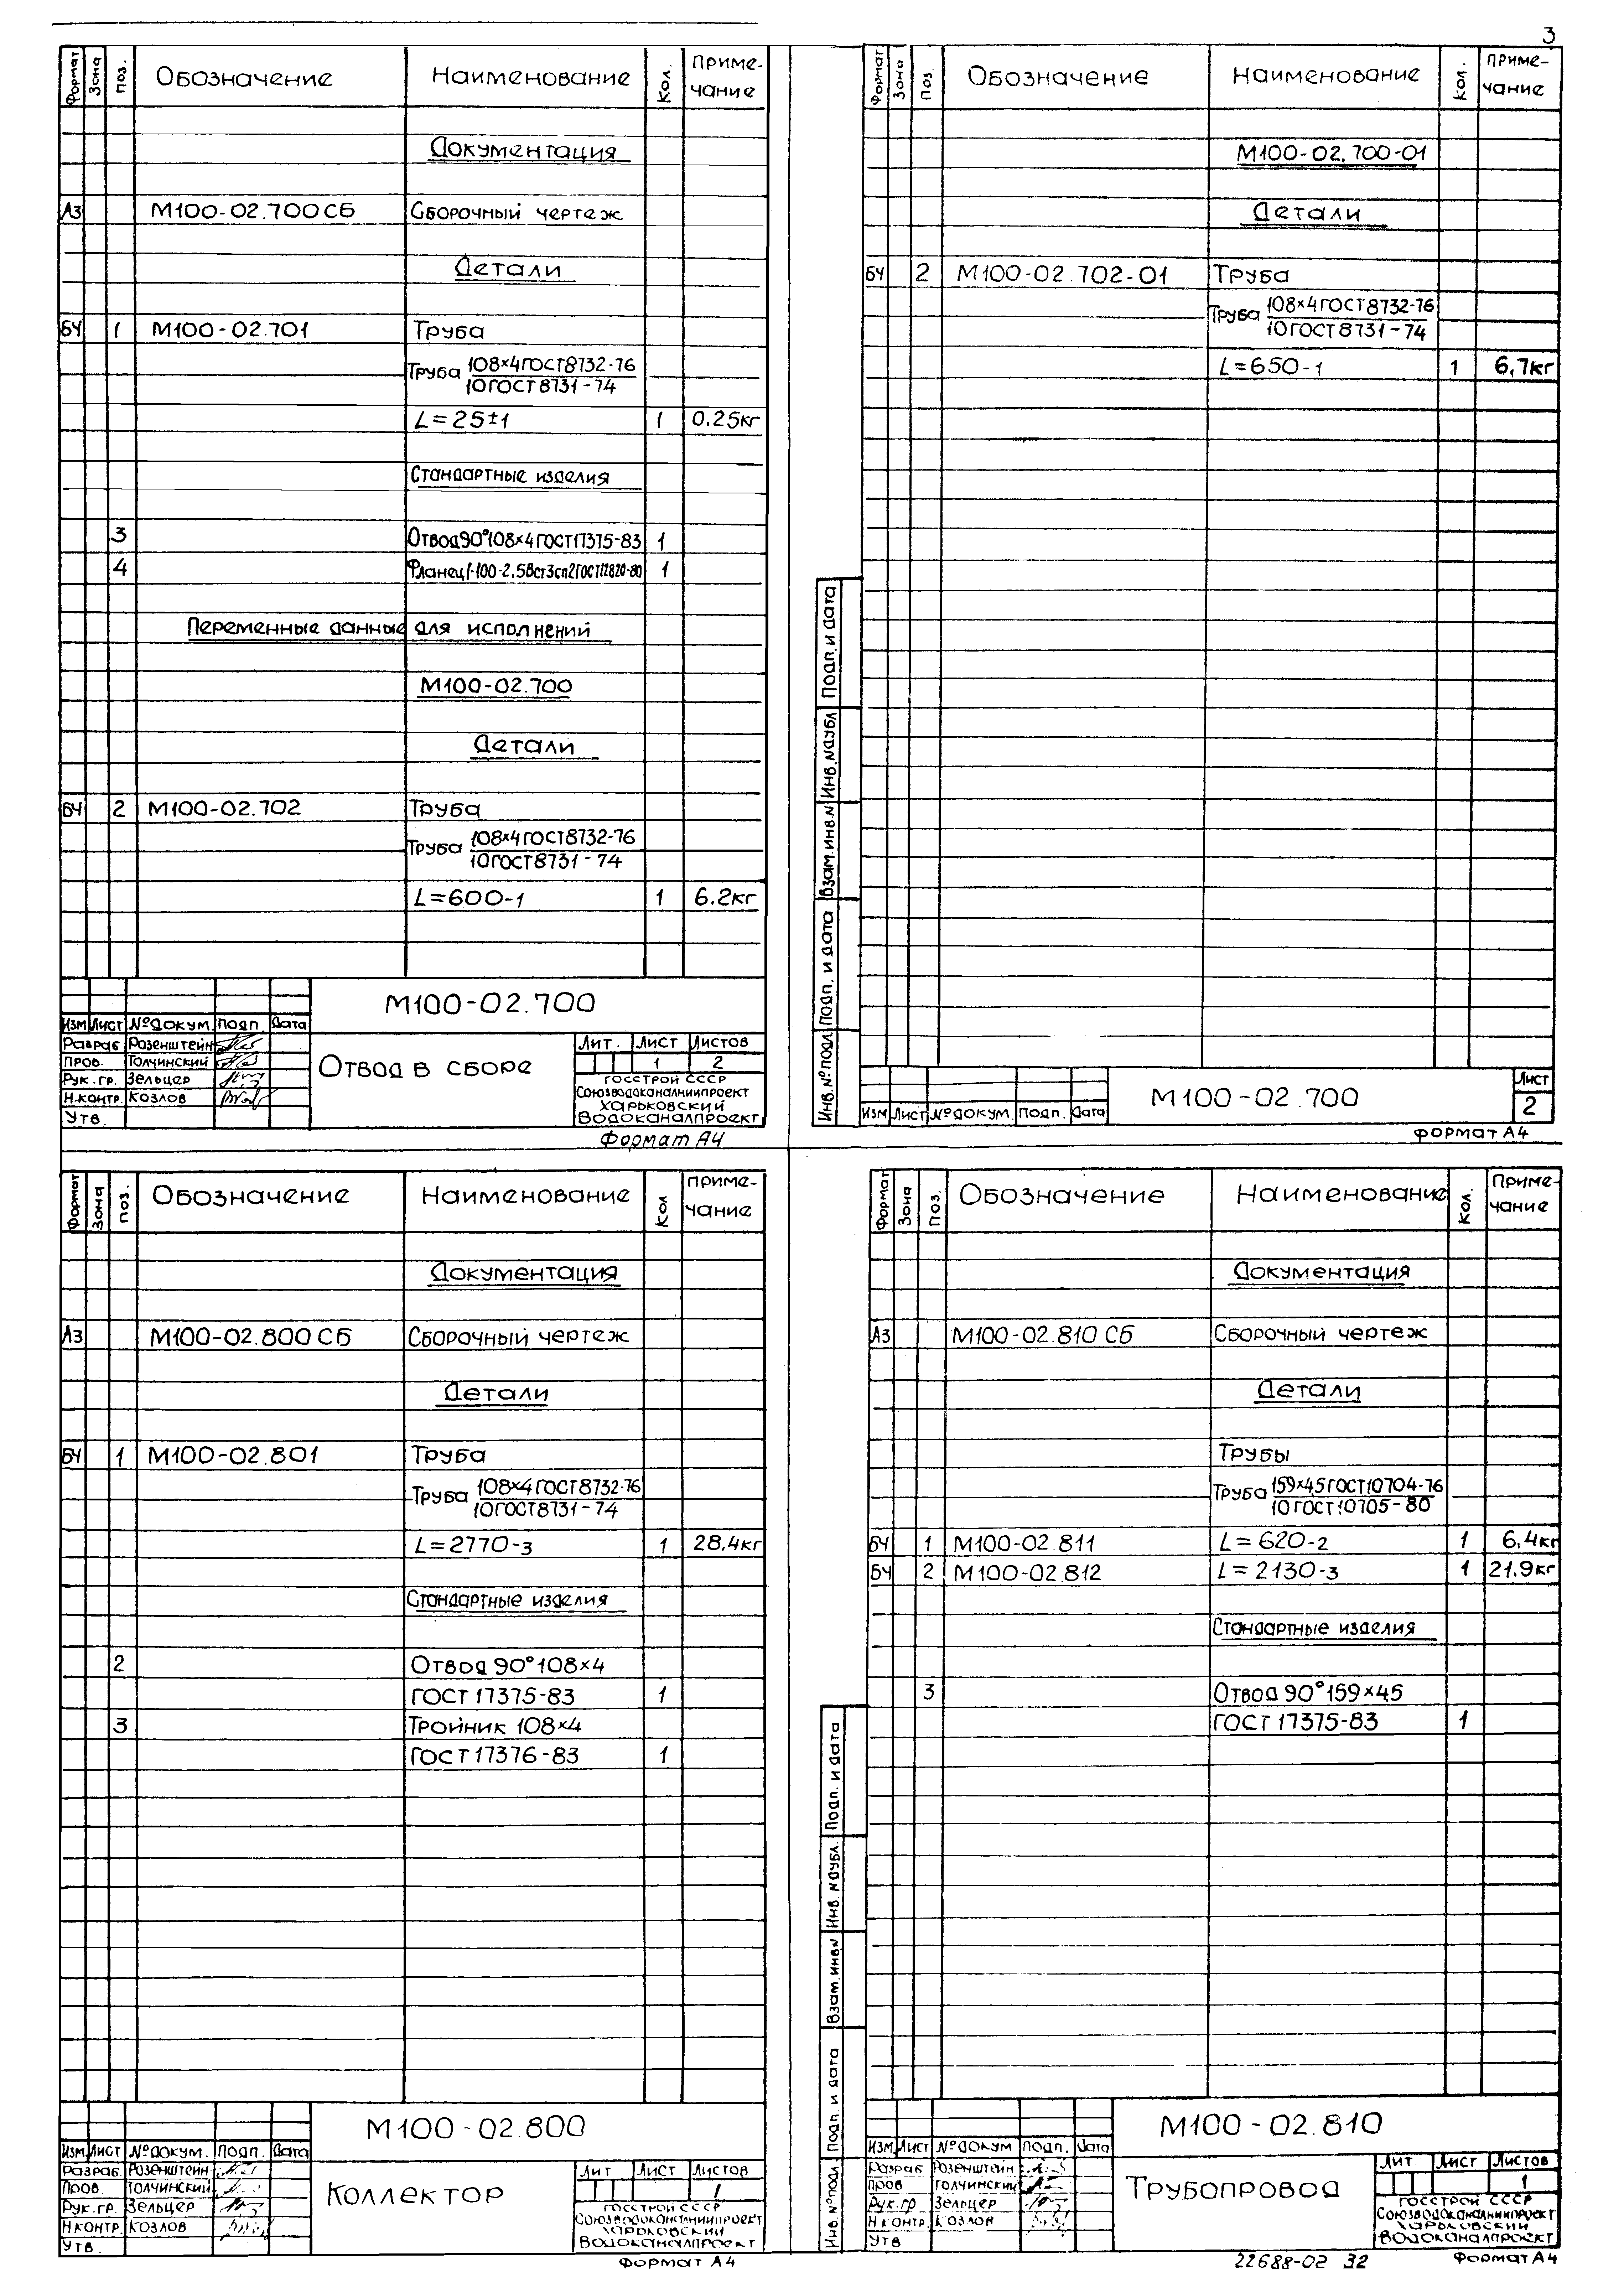 3
Формат Зона Поз. Обозначение Наименование Кол. Приме-
чание
Документация
А3 М100-02.700СБ Сборочный чертеж
Детали
БЧ 1 М100-02.701 Труба
Труба 108×4ГОСТ8732-76
10ГОСТ8731-74
L=25±1 1 0.25кг
Стандартные изделия
3 Отвод90°108×4ГОСТ17375-83 1
4 Фланец1-100-2.5Вст3сп2ГОСТ12820-80 1
Переменные данные для исполнений
М100-02.700
Детали
БЧ 2 М100-02.702 Труба
Труба 108×4ГОСТ8732-76
10ГОСТ8731-74
L=600-1 1 6.2кг
М100-02.700
Изм Лист №докум. Подп. Дата
Разраб Розенштейн
Пров. Толчинский
Рук.гр. Зельцер
Н.контр. Козлов
Утв.
Отвод в сборе
Лит. Лист Листов
1 2
Госстрой СССР
Союзводоканалниипроект
Харьковский
Водоканалпроект
Формат А4
Формат Зона Поз. Обозначение Наименование Кол. Приме-
чание
М100-02.700-01
Детали
БЧ 2 М100-02.702-01 Труба
Труба 108×4ГОСТ8732-76
10ГОСТ8731-74
L=650-1 1 6,7кг
Инв.№подл Подп. и дата Взам.инв.№ Инв.№дубл Подп. и дата
Изм Лист №докум. Подп. Дата
М100-02.700
Лист
2
Формат А4
Формат Зона Поз. Обозначение Наименование Кол Приме-
чание
Документация
А3 М100-02.800 СБ Сборочный чертеж
Детали
БЧ 1 М100-02.801 Труба
Труба 108×4ГОСТ8732-76
10ГОСТ8731-74
L=2770-3 1 28.4кг
Стандартные изделия
2 Отвод 90°108×4
ГОСТ 17375-83 1
3 Тройник 108×4
ГОСТ 17376-83 1
М100-02.800
Изм Лист №докум. Подп. Дата
Разраб. Розенштейн
Пров. Толчинский
Рук.гр. Зельцер
Н контр. Козлов
Утв.
Коллектор
Лит Лист Листов
1
Госстрой СССР
Союзводоканалниипроект
Харьковский
Водоканалпроект
Формат А4
Формат Зона Поз. Обозначение Наименование Кол. Приме-
чание
Документация
А3 М100-02.810 СБ Сборочный чертеж
Детали
Трубы
Труба 159×4,5ГОСТ10704-76
10ГОСТ10705-80
БЧ 1 М100-02.811 L=620-2 1 6,4кг
БЧ 2 М100-02.812 L=2130-3 1 21.9кг
Стандартные изделия
3 Отвод 90°159×45
ГОСТ 17375-83 1
Инв.№подл. Подп. и дата Взам.инв№ Инв. №дубл. Подп. и дата
М100-02.810
Изм Лист №докум Подп. Дата
Разраб Розенштейн
Пров Толчинский
Рук.гр Зельцер
Н контр. Козлов
Утв
Трубопровод
Лит. Лист Листов
1
Госстрой СССР
Союзводоканалниипроект
Харьковский
Водоканалпроект
22688-02 32 Формат А4